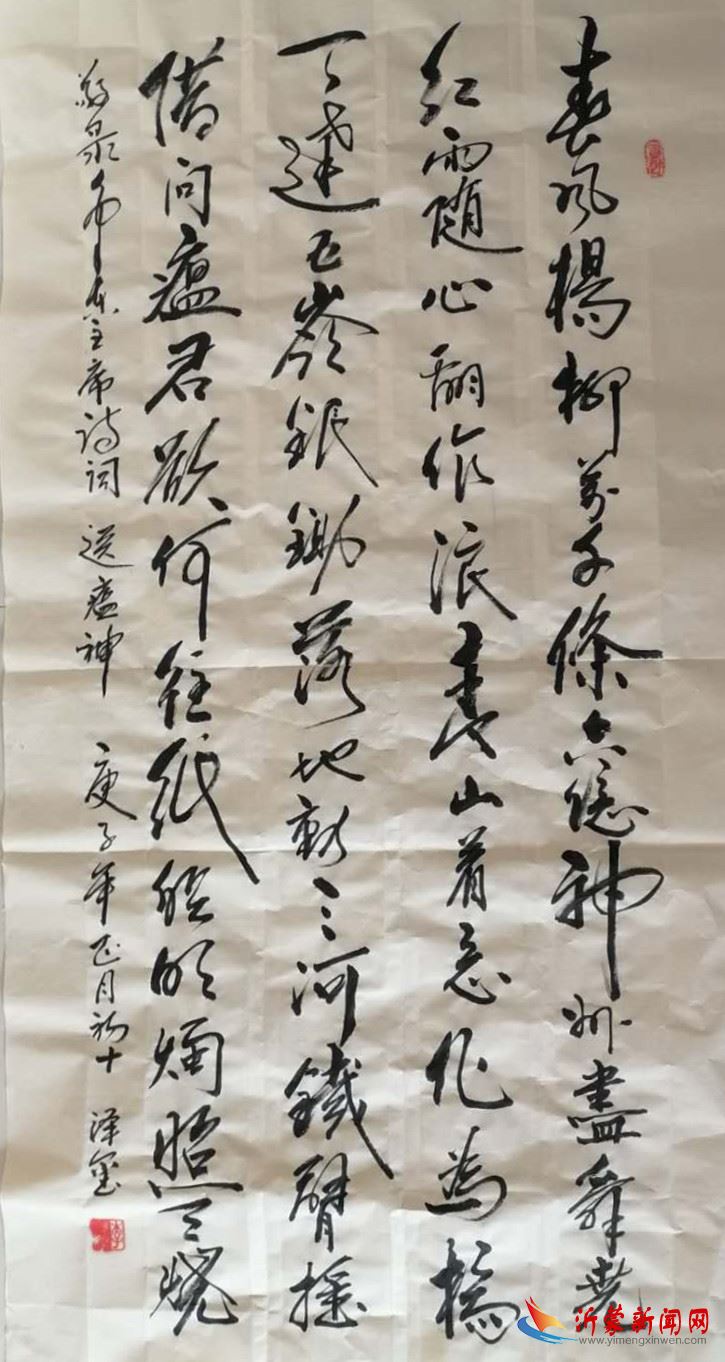 春风楊柳萬千條六億神州盡舜堯
红雨随心翻作浪青山着意化為橋
天連五嶺銀鋤落地動三河鐵臂摇
借问瘟君欲何往纸船明烛照天烧
敬录毛泽东主席诗词 送瘟神 庚子年正月初十 泽玺
沂蒙新闻网
www.yimengxinwen.com